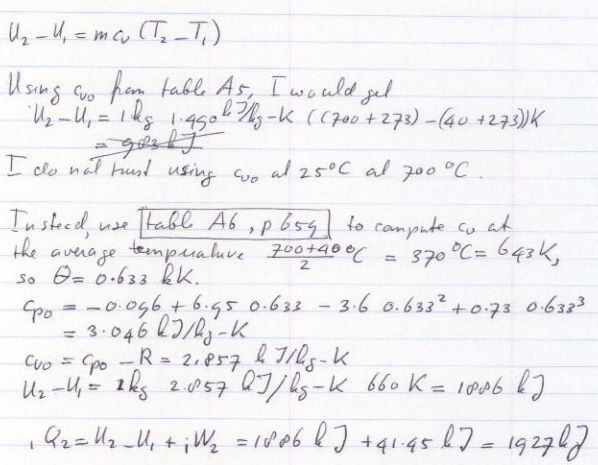 U₂ - U₁ = m cᵥ (T₂ - T₁)
Using cᵥₒ from table A5, I would get
U₂ - U₁ = 1 kg 1.490 kJ/kg-K ((700 + 273) - (40 + 273))K
= 983 kJ
I do not trust using cᵥₒ at 25°C at 700 °C.
Instead, use table A6, p 659 to compute cᵥ at
the average temperature (700+40)/2 °C = 370 °C = 643 K,
so θ = 0.633 kK.
cₚₒ = -0.096 + 6.95 0.633 - 3.6 0.633² + 0.73 0.633³
= 3.046 kJ/kg-K
cᵥₒ = cₚₒ - R = 2.857 kJ/kg-K
U₂ - U₁ = 1 kg 2.857 kJ/kg-K 660 K = 1886 kJ
₁Q₂ = U₂ - U₁ + ₁W₂ = 1886 kJ + 41.45 kJ = 1927 kJ